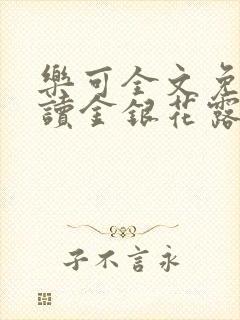 樂可全文免
讀金銀花露
子不言永